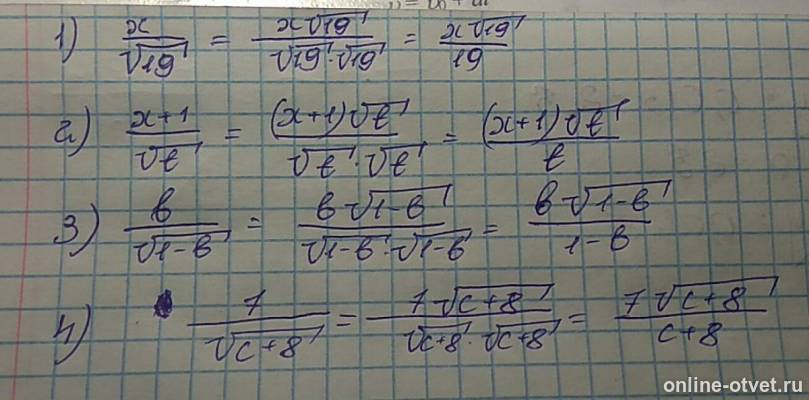 1) x/√19 = x√19/√19·√19 = x√19/19
2) x+1/√t = (x+1)√t/√t·√t = (x+1)√t/t
3) в/√1-в = в·√1-в/√1-в·√1-в = в·√1-в/1-в
4) 7/√c+8 = 7√c+8/√c+8·√c+8 = 7√c+8/c+8
online-otvet.ru